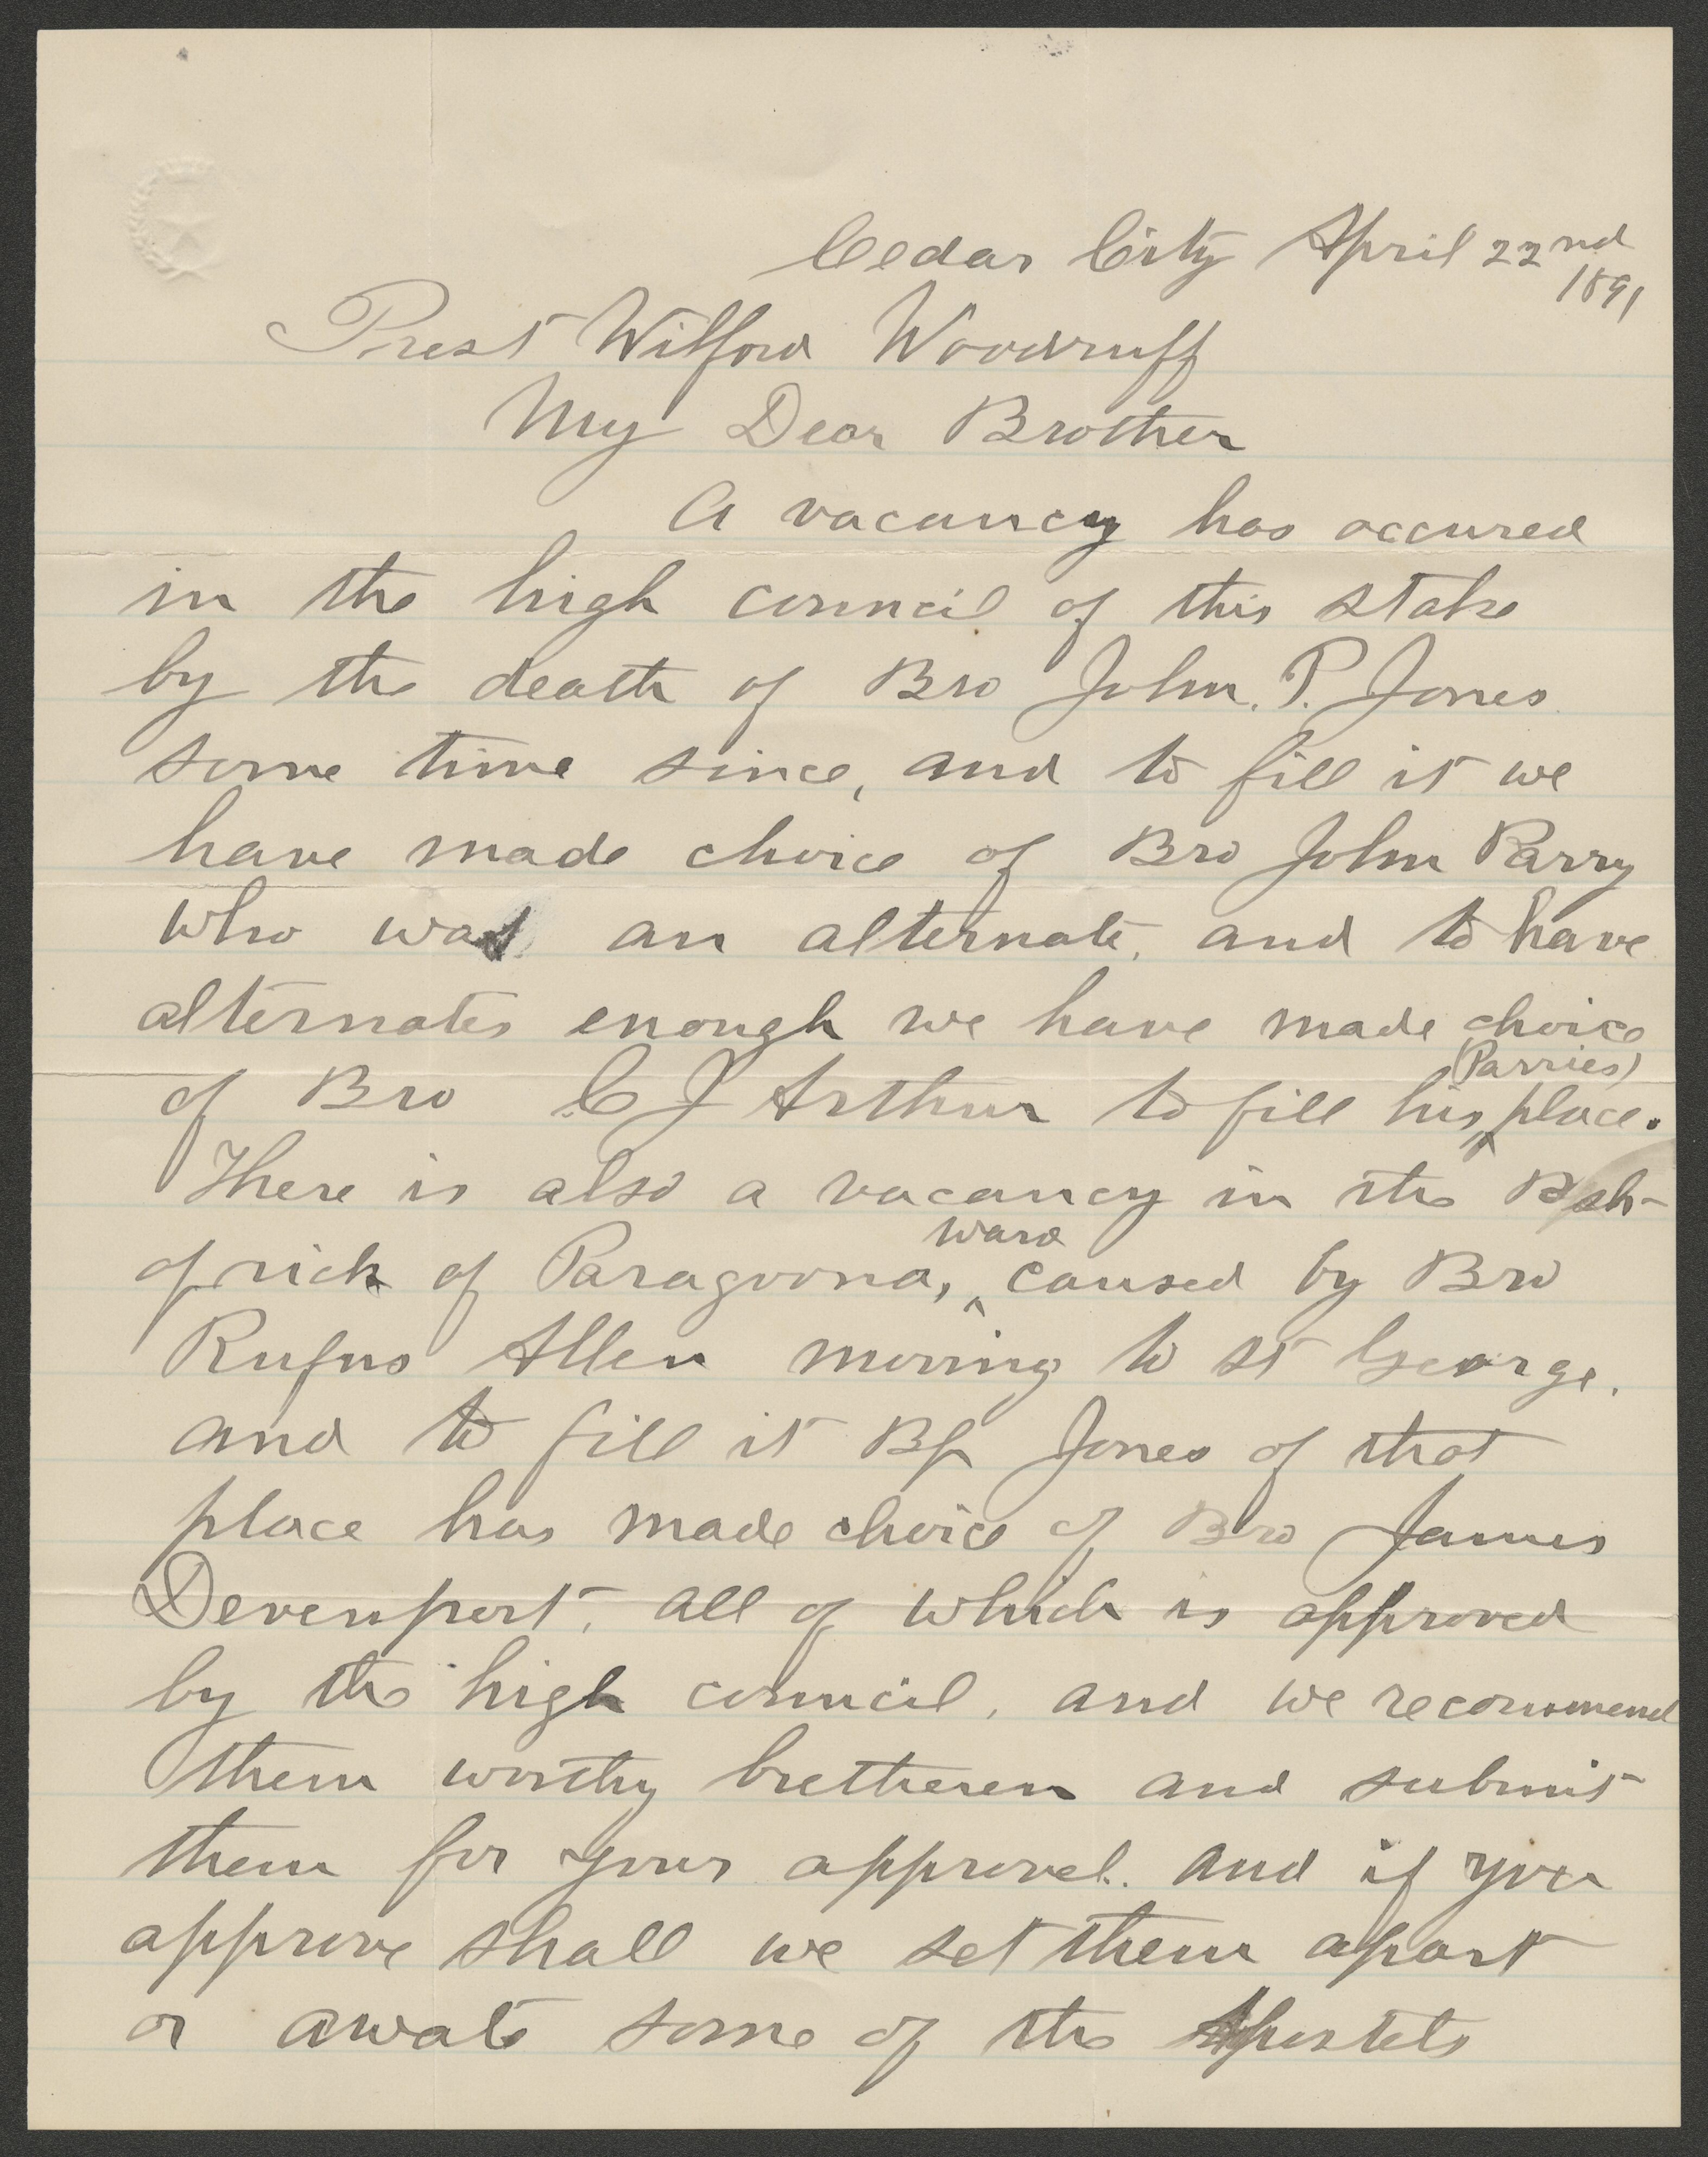 Cedar City April 22nd
1891
Prest Wilford Woodruff
My Dear Brother
A vacancy has occured
in the high council of this stake
by the death of Bro John. P. Jones
some time since, and to fill it we
have made choice of Bro John Parry
who was an alternate, and to have
alternates enough we have made choice
(Parries)
of Bro C J Arthur to fill his ^ place.
There is also a vacancy in the Bsh-
ward
ofrick of Paragoona, ^ caused by Bro
Rufus Allen moving to St George.
and to fill it Bp Jones of that
place has made choice of Bro James
Devenport, all of which is approved
by the high council, and we recommend
them worthy bretheren and submit
them for your approvel. and if you
approve shall we set them apart
or awate some of the Apostels